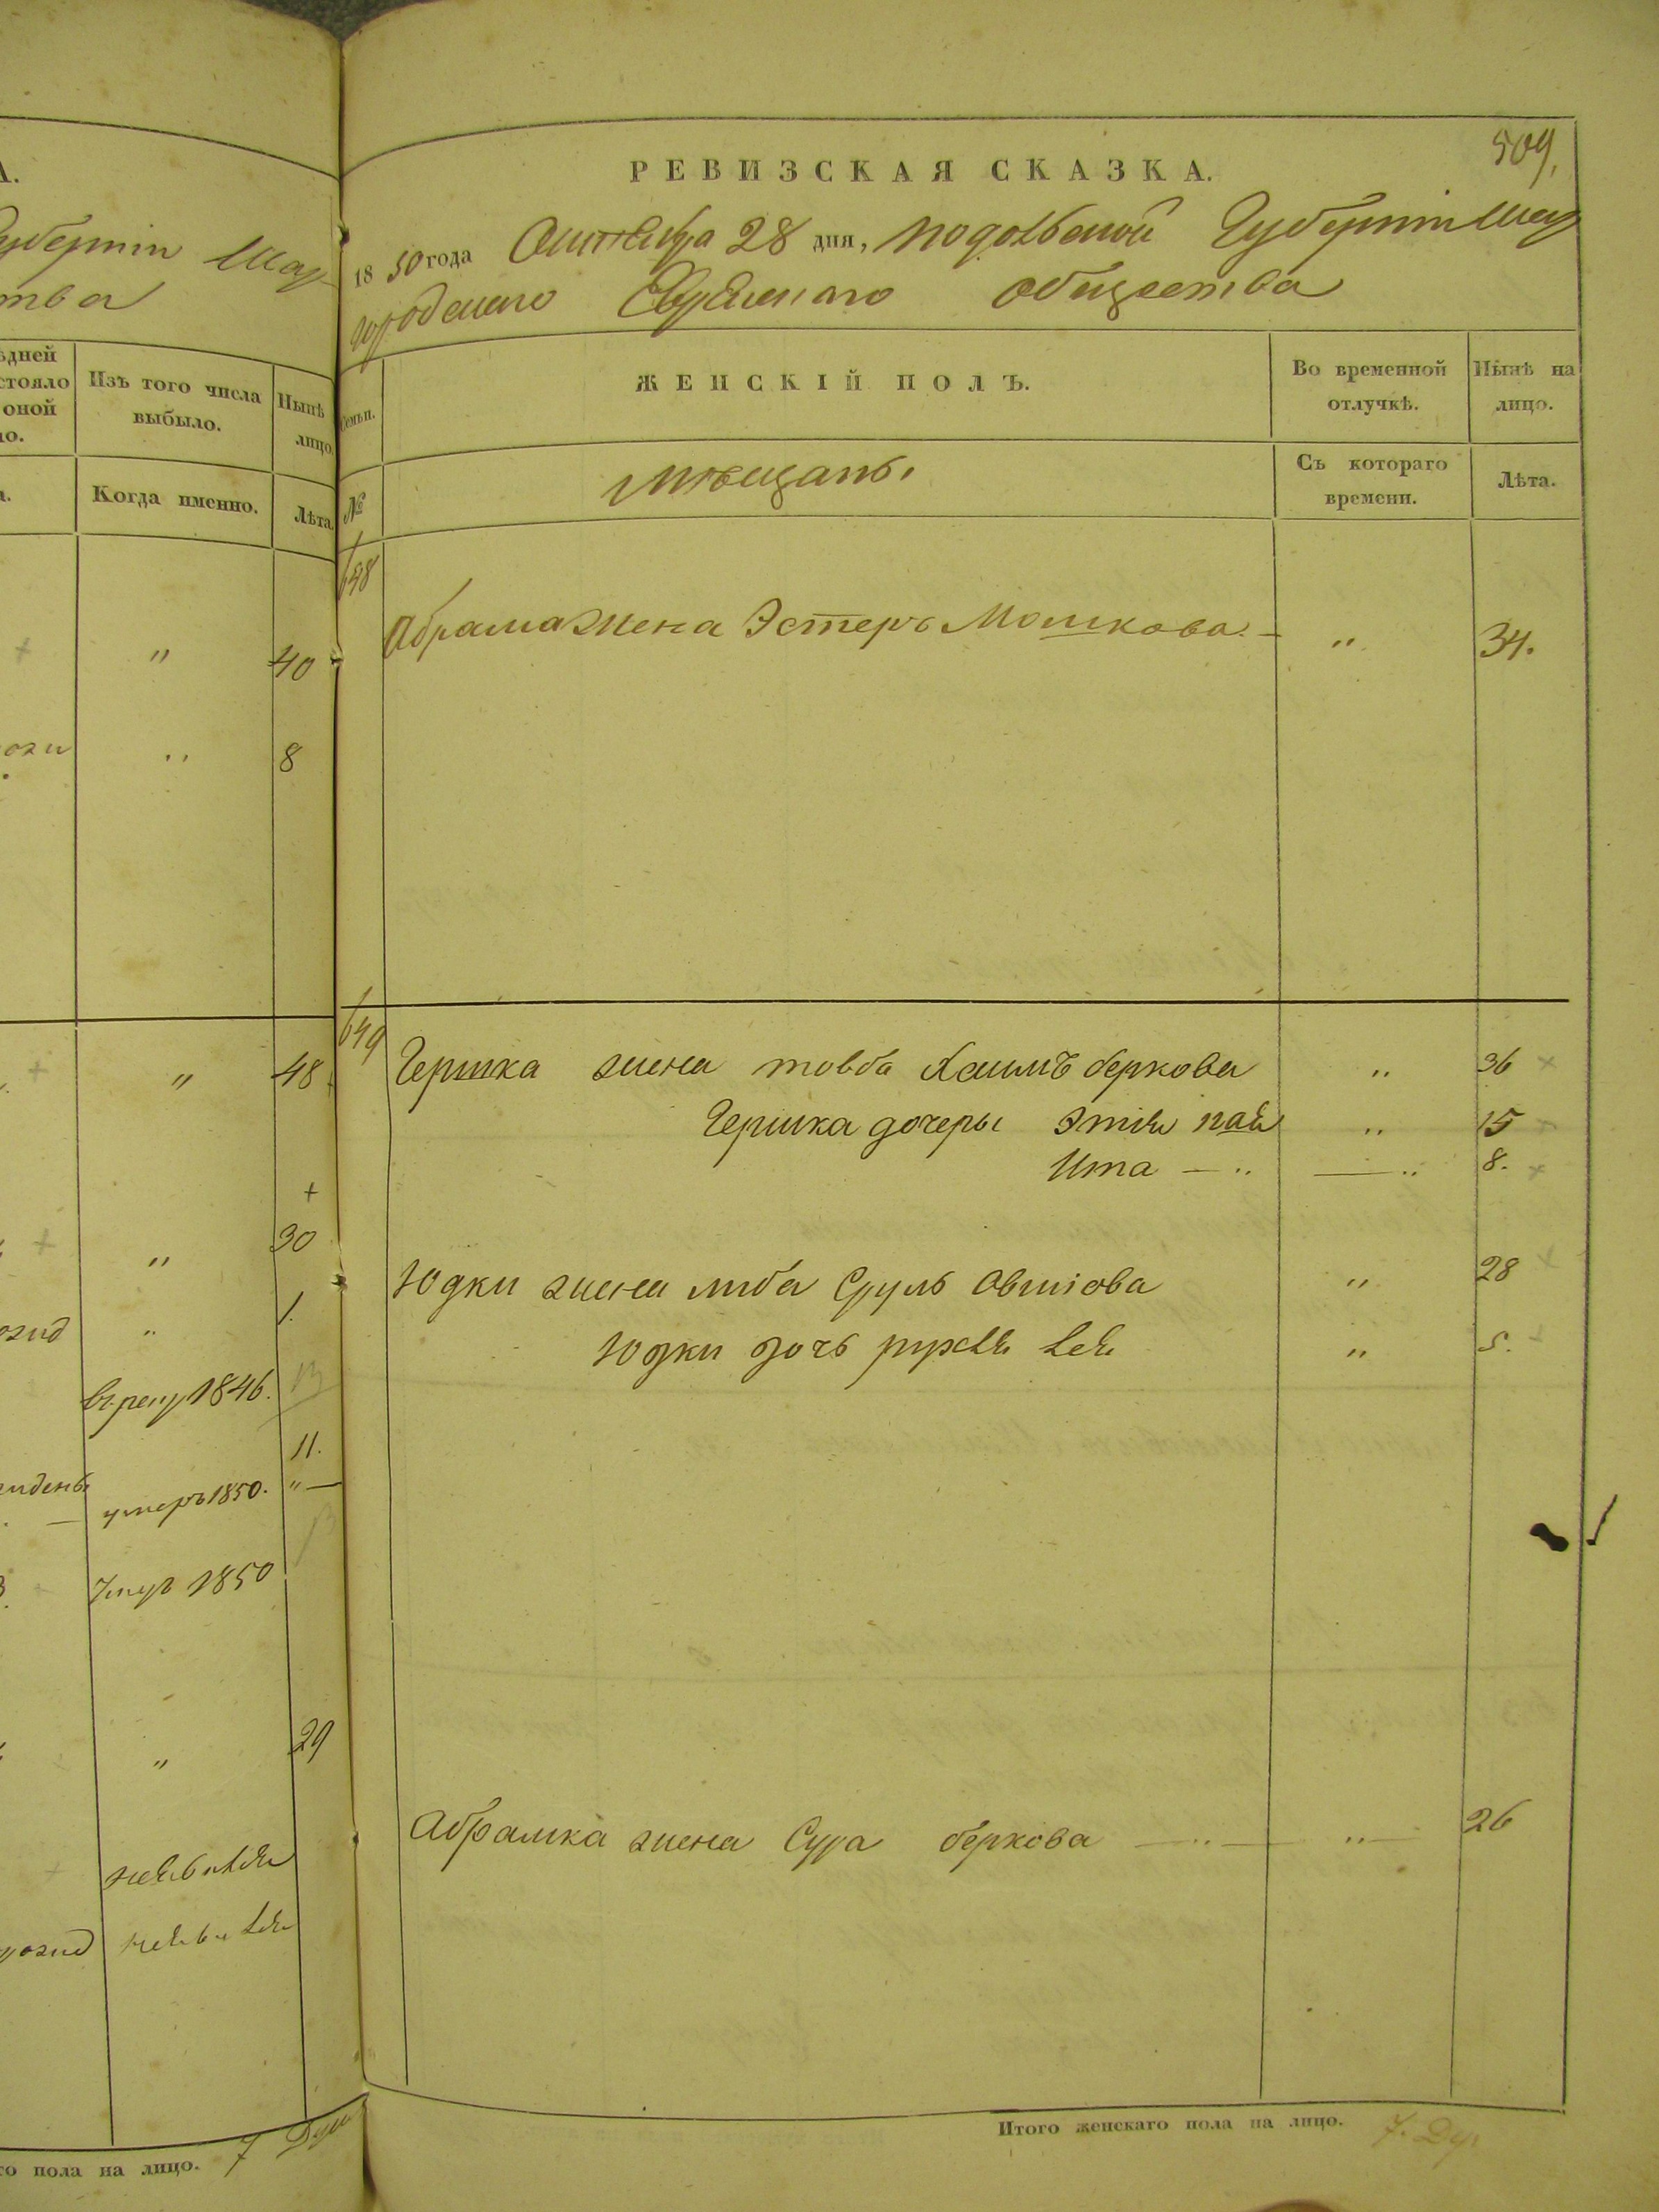 А.
Губерніи Шар
тва
ѣдней
стояло
оной
ло.
Изъ того числа
выбыло.
Нынѣ
лицо
а.
Когда именно.
Лѣта.
"
40
8
"
48
"
30
"
1.
11.
умеръ 1850.
"
1850
"
29
го пола на лицо. 7
509.
РЕВИЗСКАЯ СКАЗКА.
1850 года Октября 28 дня, Подольской Губерніи Шар
городскаго Еврейскаго общества
Семьи.
ЖЕНСКІЙ ПОЛЪ.
Во временной
отлучкѣ.
Нынѣ на
лицо.
№
Мѣщанъ.
Съ котораго
времени.
Лѣта.
648
Абрама жена Эстеръ Мошкова. — " 34.
649
Гершка жена товба Хаимъ беркова " 36
Гершка дочеры Этля " 15
Ита — " — " 8.
Юдки жена либа Сруль Овшіова " 28
Юдки дочь рухля лея " 5.
Абрамка жена Сура беркова — " — " — 26
Итого женскаго пола на лицо. 7.